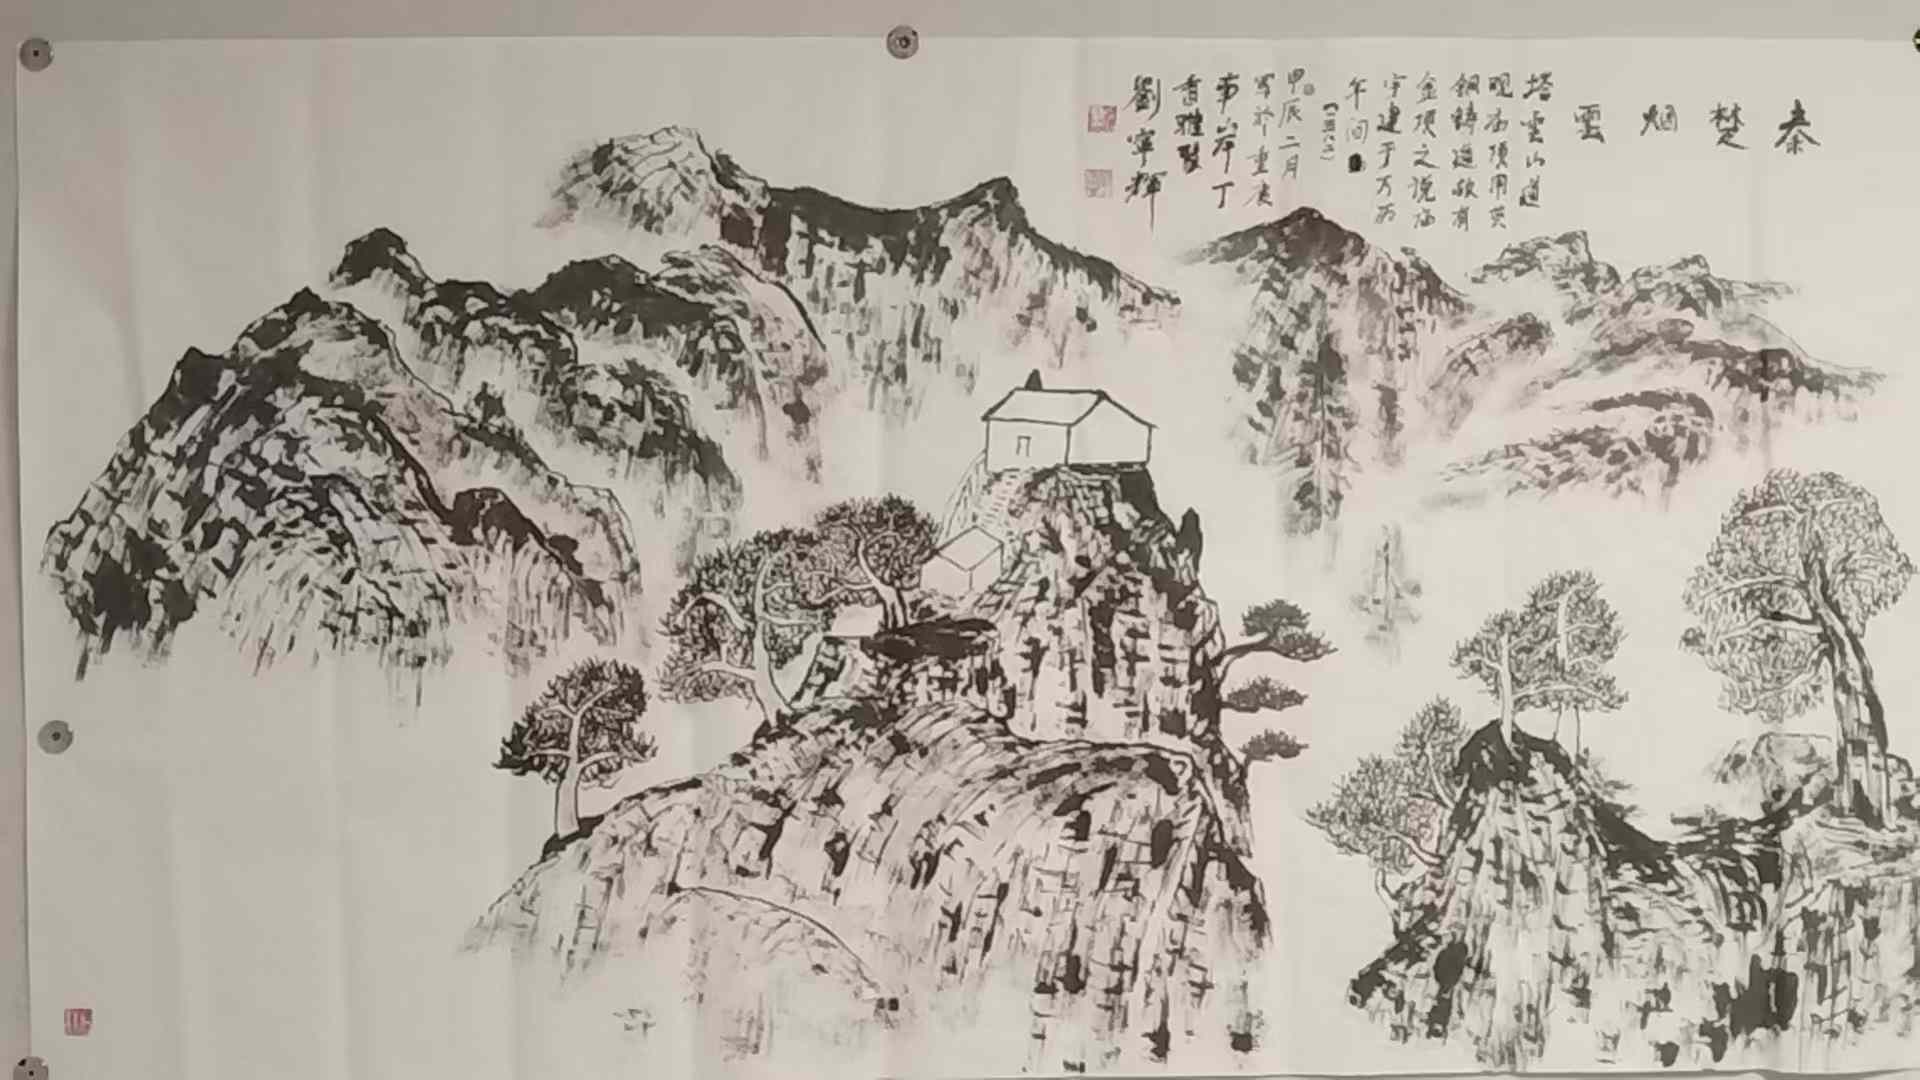 秦楚烟雲
塔雲山道
观庙顶用黄
铜鑄造故有
金顶之说庙
宇建于万历
年间
甲辰二月
写於重庆
南岸丁
香雅
劉寧輝